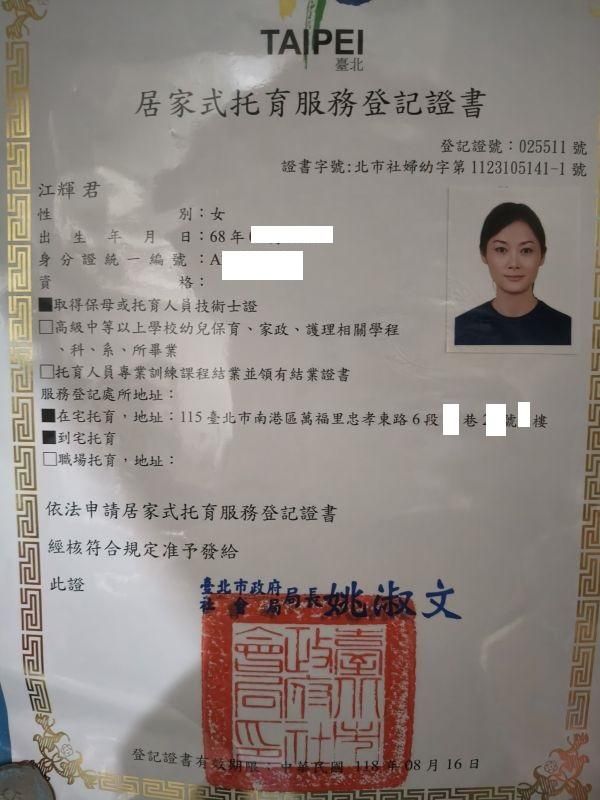 TAIPEI
臺北
居家式托育服務登記證書
登記證號：025511 號
證書字號:北市社婦幼字第 1123105141-1 號
江輝君
性別：女
出生年月日：68年
身分證統一編號：A
資格：
■取得保母或托育人員技術士證
□高級中等以上學校幼兒保育、家政、護理相關學程
、科、系、所畢業
□托育人員專業訓練課程結業並領有結業證書
服務登記處所地址：
■在宅托育，地址：115臺北市南港區萬福里忠孝東路6段 巷2 號 樓
■到宅托育
□職場托育，地址：
依法申請居家式托育服務登記證書
經核符合規定准予發給
此證
臺北市政府
社會局局長姚淑文
臺北市政府社會局印
登記證書有效期限：中華民國 118年08月16日